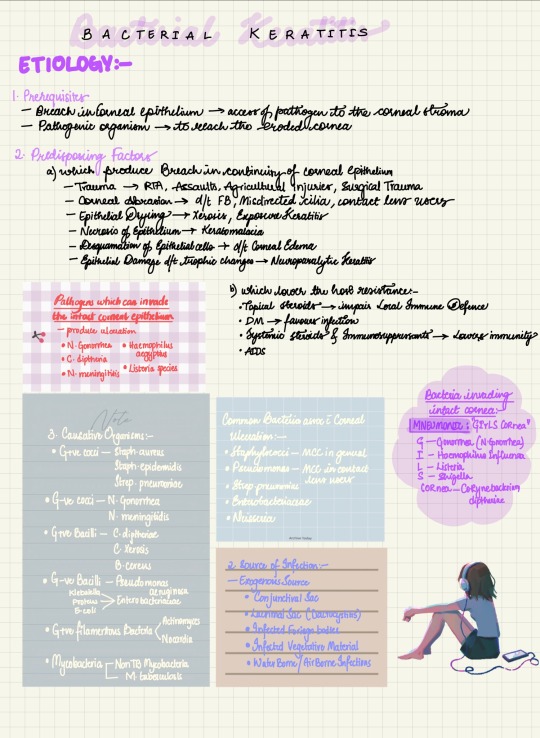 BACTERIAL KERATITIS
ETIOLOGY:-
1. Prerequisites
– Breach in corneal epithelium → access of pathogen to the corneal stroma
– Pathogenic organism → to reach the eroded cornea
2. Predisposing Factors
a) which produce Breach in continuity of corneal Epithelium
– Trauma → RTA, Assaults, Agricultural Injuries, Surgical Trauma
– Corneal abrasion → d/t FB, Misdirected cilia, contact lens users
– Epithelial Drying → Xerosis, Exposure Keratitis
– Necrosis of Epithelium → Keratomalacia
– Desquamation of Epithelial cells → d/t Corneal Edema
– Epithelial Damage d/t trophic changes → Neuroparalytic Keratitis
b) which lower the host resistance:-
• Topical steroids → impair Local Immune Defence
• DM → favours infection
• Systemic steroids & Immunosuppressants → Lowers immunity
• AIDS
Pathogens which can invade
the intact corneal epithelium
– produce ulceration
• N. Gonorrhea
• C. diptheria
• N. meningitidis
• Haemophilus aegyptus
• Listeria species
Bacteria invading
intact cornea:-
MNEUMONIC: "GILS CORNEA"
G – Gonorrhea (N. Gonorrhea)
I – Haemophilus Influenza
L – Listeria
S – Shigella
CORnea – Corynebacterium
diptheriae
Note
3. Causative Organisms:-
• G+ve cocci – Staph. aureus
Staph. epidermidis
Strep. pneumoniae
• G-ve cocci – N. Gonorrhea
N. meningitidis
• G+ve Bacilli – C. diptheriae
C. Xerosis
B. cereus
• G-ve Bacilli – Pseudomonas
aeruginosa
Klebsiella
Proteus
E. coli
Enterobacteriaceae
• G+ve filamentous Bacteria
Actinomyces
Nocardia
• Mycobacteria
Non TB Mycobacteria
M. tuberculosis
Common Bacteria asso c̄ Corneal
Ulceration:-
• Staphylococci – MCC in general
• Pseudomonas – MCC in contact
lens users
• Strep. pneumoniae
• Enterobacteriaceae
• Neisseria
2. Source of Infection:-
– Exogenous Source
• Conjunctival Sac
• Lacrimal Sac (Dacrocystitis)
• Infected Foreign bodies
• Infected Vegetative Material
• Water Borne / Air Borne Infections